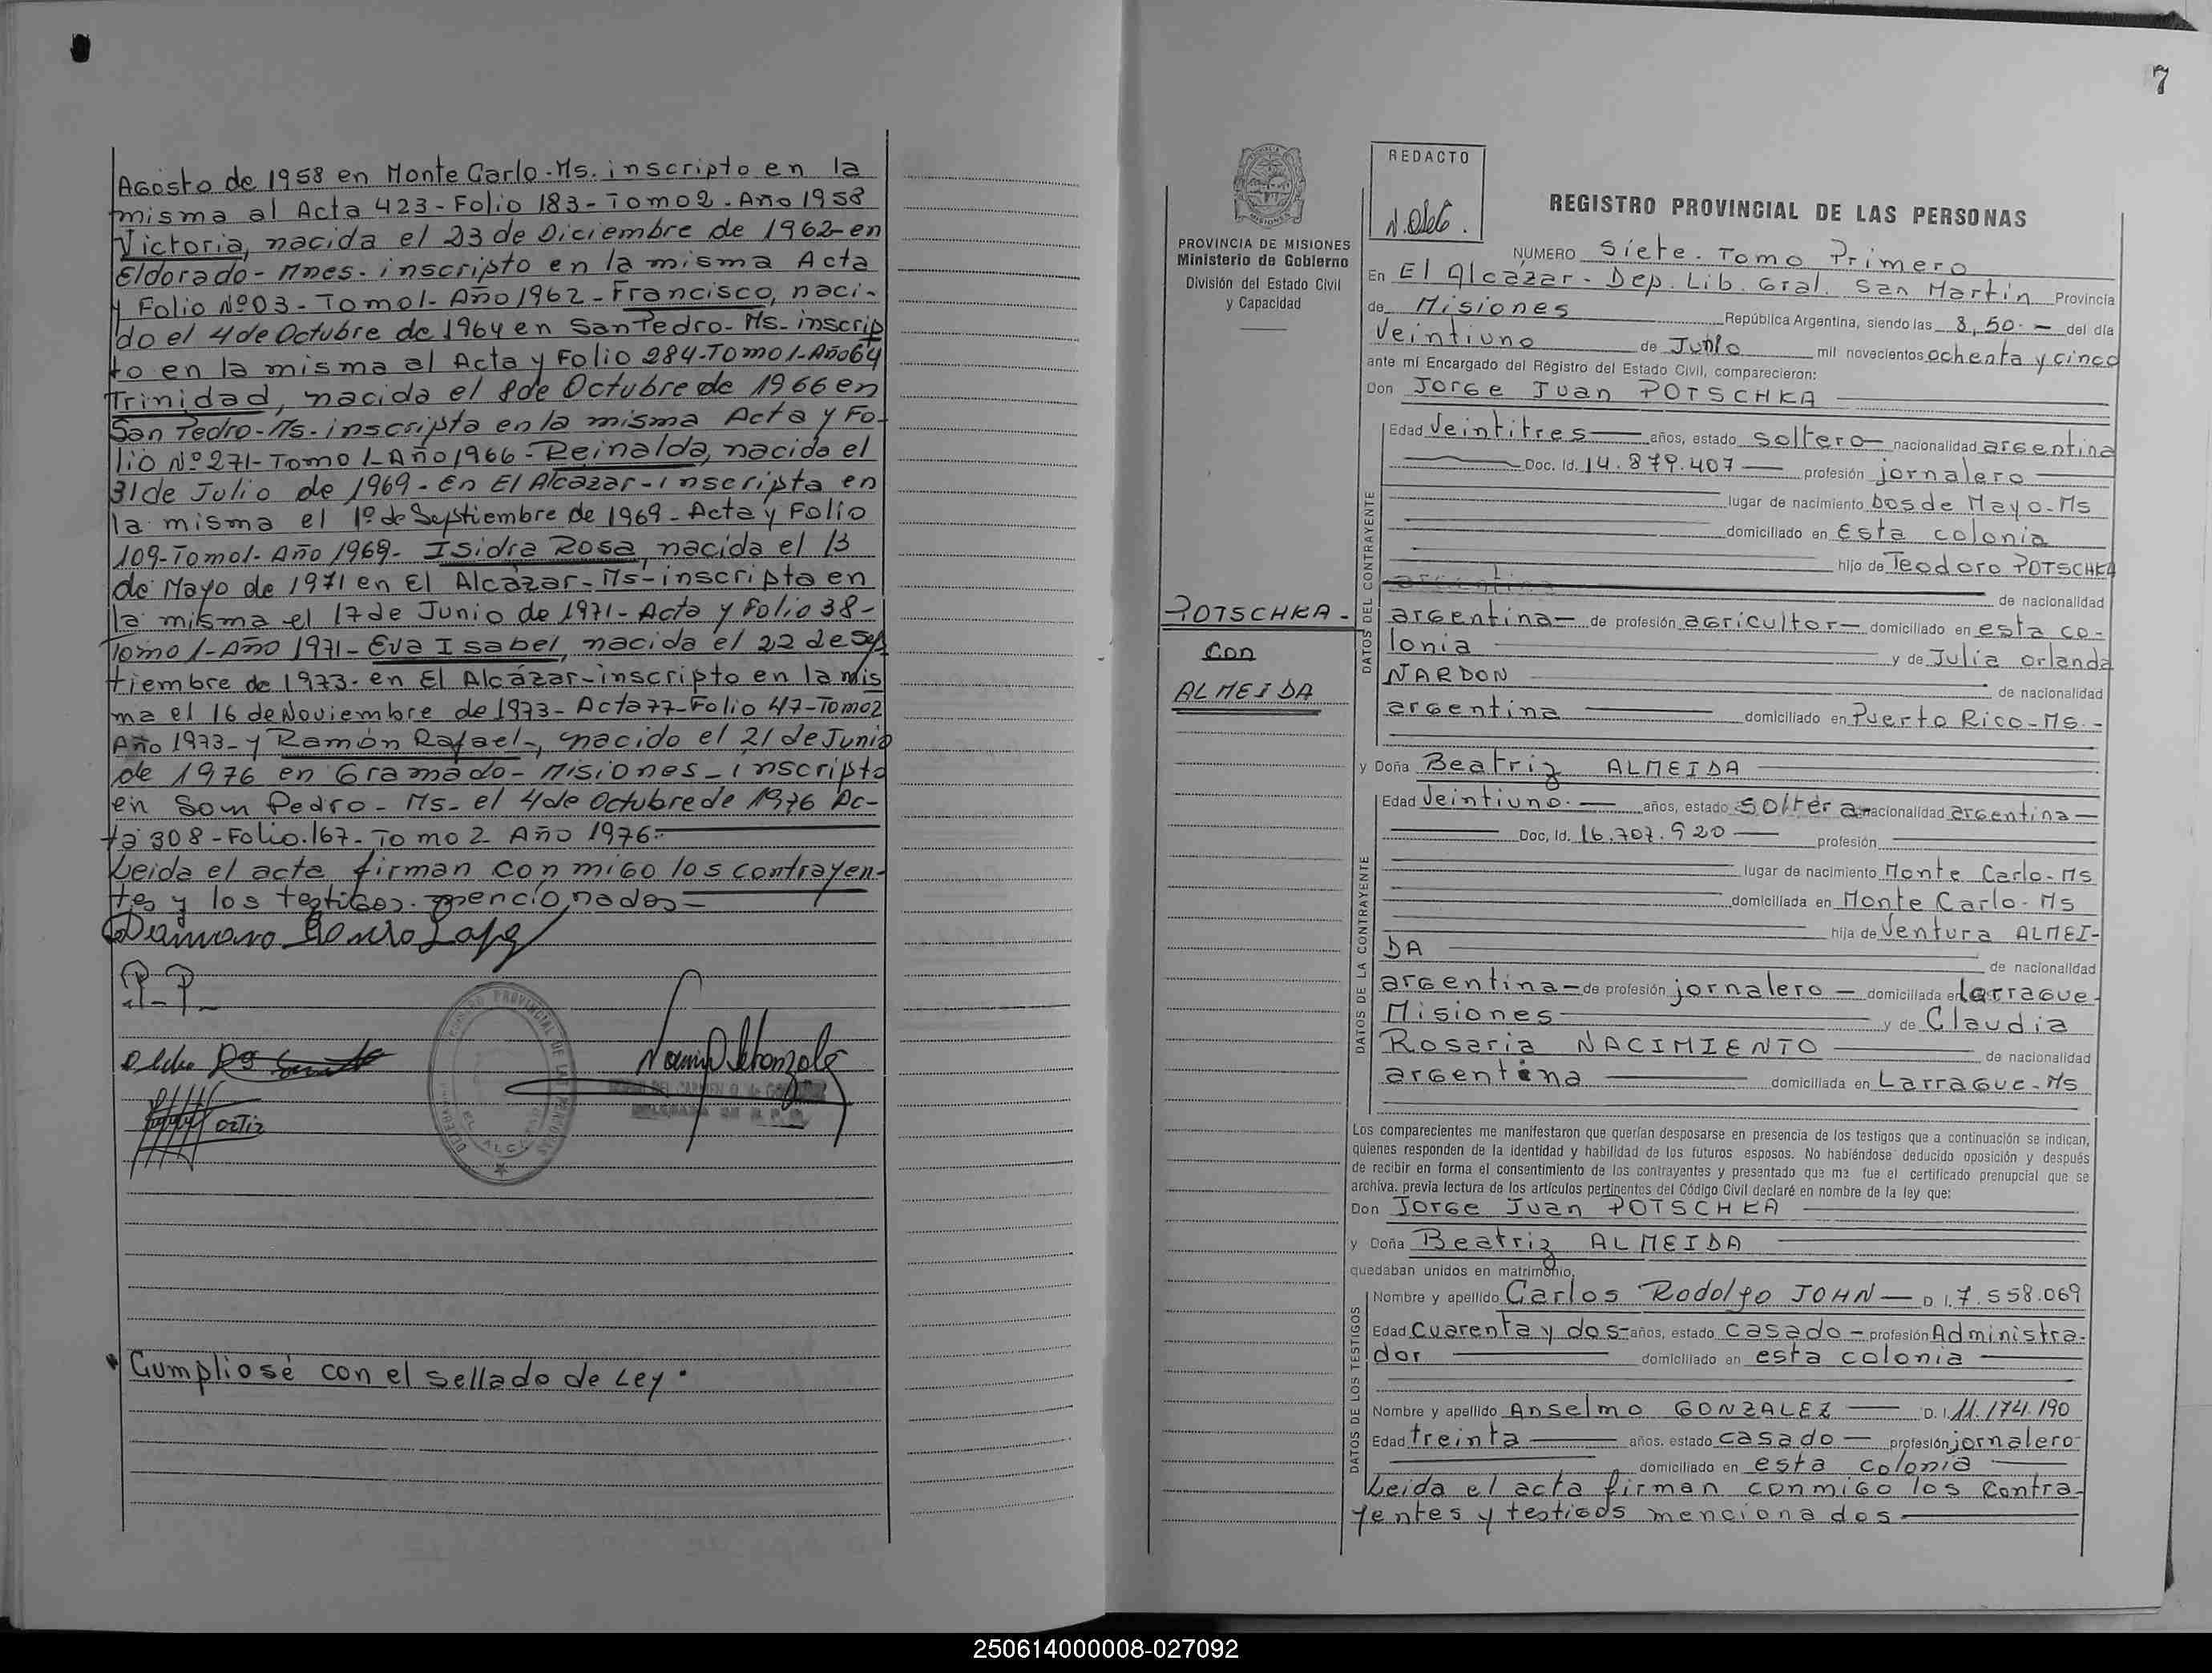 Agosto de 1958 en Monte Carlo-Ms. inscripto en la
misma al Acta 423-Folio 183-Tomo 2. Año 1958
Victoria, nacida el 23 de Diciembre de 1962 en
Eldorado-Mnes. inscripto en la misma Acta
y Folio Nº03-Tomo 1-Año 1962-Francisco, naci-
do el 4 de Octubre de 1964 en San Pedro-Ms-inscrip
to en la misma al Acta y Folio 284-Tomo 1-Año 64
Trinidad, nacida el 8 de Octubre de 1966 en
San Pedro-Ms-inscripta en la misma Acta y Fo-
lio Nº271-Tomo 1-Año 1966-Reinalda, nacida el
31 de Julio de 1969-En El Alcázar-inscripta en
la misma el 1º de Septiembre de 1969-Acta y Folio
109-Tomo 1-Año 1969-Isidra Rosa, nacida el 13
de Mayo de 1971 en El Alcázar-Ms-inscripta en
la misma el 17 de Junio de 1971-Acta y Folio 38-
Tomo 1-Año 1971-Eva Isabel, nacida el 22 de Sep
tiembre de 1973-en El Alcázar-inscripto en la mis
ma el 16 de Noviembre de 1973-Acta 77-Folio 47-Tomo 2
Año 1973-y Ramón Rafael-, nacido el 21 de Junio
de 1976 en Gramado-Misiones-inscripto
en San Pedro-Ms-el 4 de Octubre de 1976 Ac-
ta 308-Folio.167-Tomo 2 Año 1976-
Leida el acta firman conmigo los contrayen-
tes y los testigos mencionados=
Ortiz
"Cumpliosé con el sellado de Ley"
7
PROVINCIA DE MISIONES
Ministerio de Gobierno
División del Estado Civil
y Capacidad
POTSCHKA-
con
ALMEIDA
REDACTO
REGISTRO PROVINCIAL DE LAS PERSONAS
NUMERO Siete. Tomo Primero
En El Alcázar-Dep. Lib. Gral. San Martín Provincia
de Misiones República Argentina, siendo las 8,50.- del día
Veintiuno de Junio mil novecientos ochenta y cinco
ante mí Encargado del Registro del Estado Civil, comparecieron:
Don Jorge Juan POTSCHKA
DATOS DEL CONTRAYENTE
Edad Veintitres años, estado soltero nacionalidad argentina
Doc. Id. 14.879.407 profesión jornalero
lugar de nacimiento Dos de Mayo-Ms
domiciliado en Esta colonia
hijo de Teodoro POTSCHKA
argentina de nacionalidad
argentina- de profesión agricultor- domiciliado en esta co-
lonia y de Julia Orlanda
NARDON de nacionalidad
argentina domiciliado en Puerto Rico-Ms.-
y Doña Beatriz ALMEIDA
DATOS DE LA CONTRAYENTE
Edad Veintiuno.- años, estado soltera nacionalidad argentina-
Doc, Id. 16.707.920 profesión
lugar de nacimiento Monte Carlo-Ms
domiciliada en Monte Carlo-Ms
hija de Ventura ALMEI-
DA de nacionalidad
argentina- de profesión jornalero- domiciliada en Larrague-
Misiones y de Claudia
Rosaria NACIMIENTO de nacionalidad
argentina domiciliada en Larrague-Ms
Los comparecientes me manifestaron que querían desposarse en presencia de los testigos que a continuación se indican,
quienes responden de la identidad y habilidad de los futuros esposos. No habiéndose deducido oposición y después
de recibir en forma el consentimiento de los contrayentes y presentado que me fue el certificado prenupcial que se
archiva. previa lectura de los artículos pertinentes del Código Civil declaré en nombre de la ley que:
Don Jorge Juan POTSCHKA
y Doña Beatriz ALMEIDA
quedaban unidos en matrimonio.
DATOS DE LOS TESTIGOS
Nombre y apellido Carlos Rodolfo JOHN- D. I. 7.558.069
Edad Cuarenta y dos- años, estado casado- profesión Administra-
dor domiciliado en esta colonia
Nombre y apellido Anselmo GONZALEZ D. I. 11.174.190
Edad treinta años. estado casado- profesión jornalero-
domiciliado en esta colonia
Leida el acta firman conmigo los Contra-
yentes y testigos mencionados
250614000008-027092